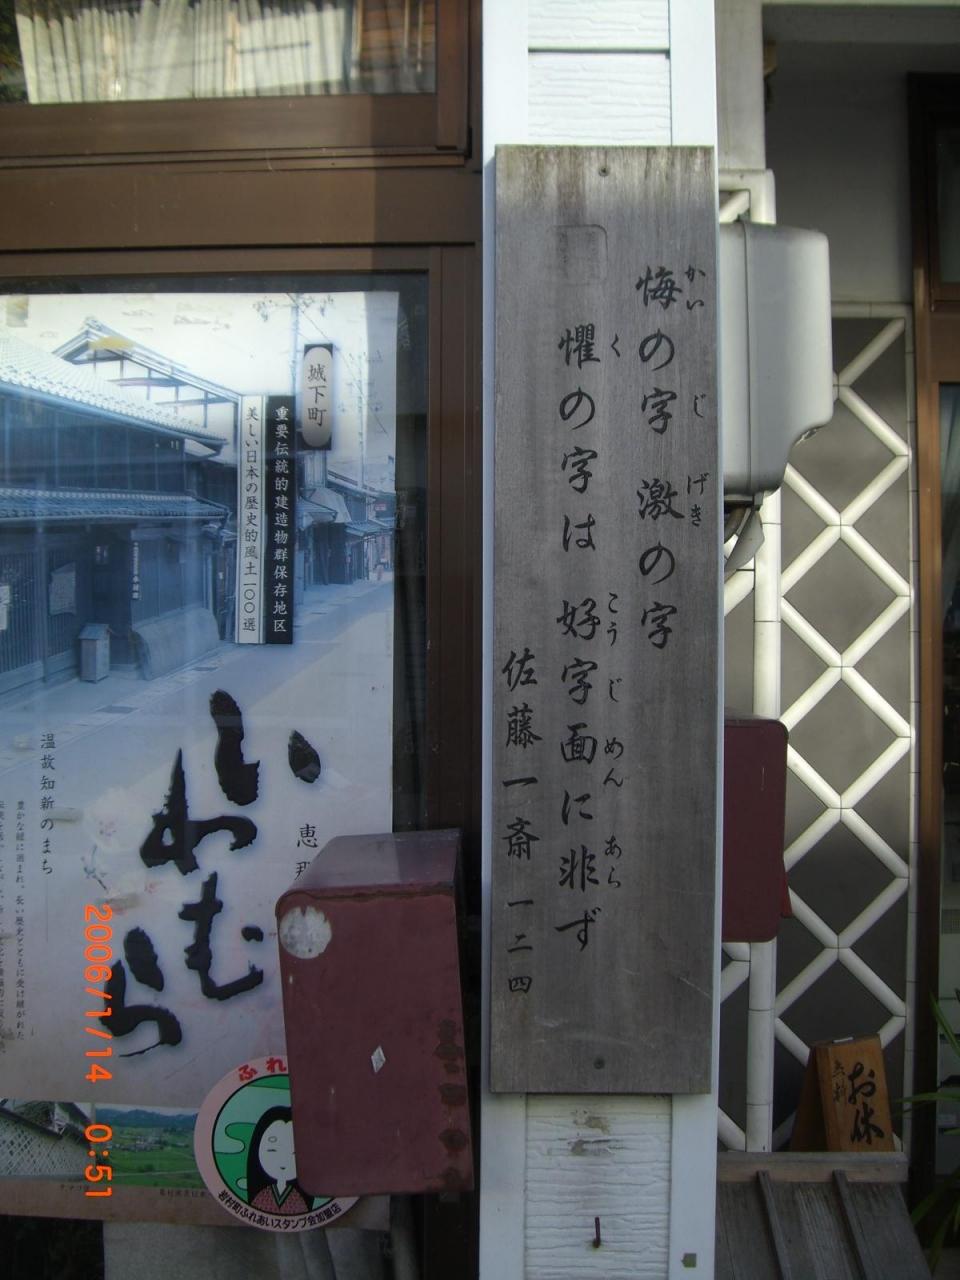 悔の字 激の字
かい じ げき
懼の字は 好字面に非ず
く こう じ めん あら
佐藤一斎 一二四
城下町
重要伝統的建造物群保存地区
美しい日本の歴史的風土一〇〇選
いわむら
恵那
温故知新のまち
豊かな緑に囲まれ、長い歴史とともに受け継がれた
ふれ
岩村町ふれあいスタンプ会加盟店
お休
無料
2006/1/14 0:51